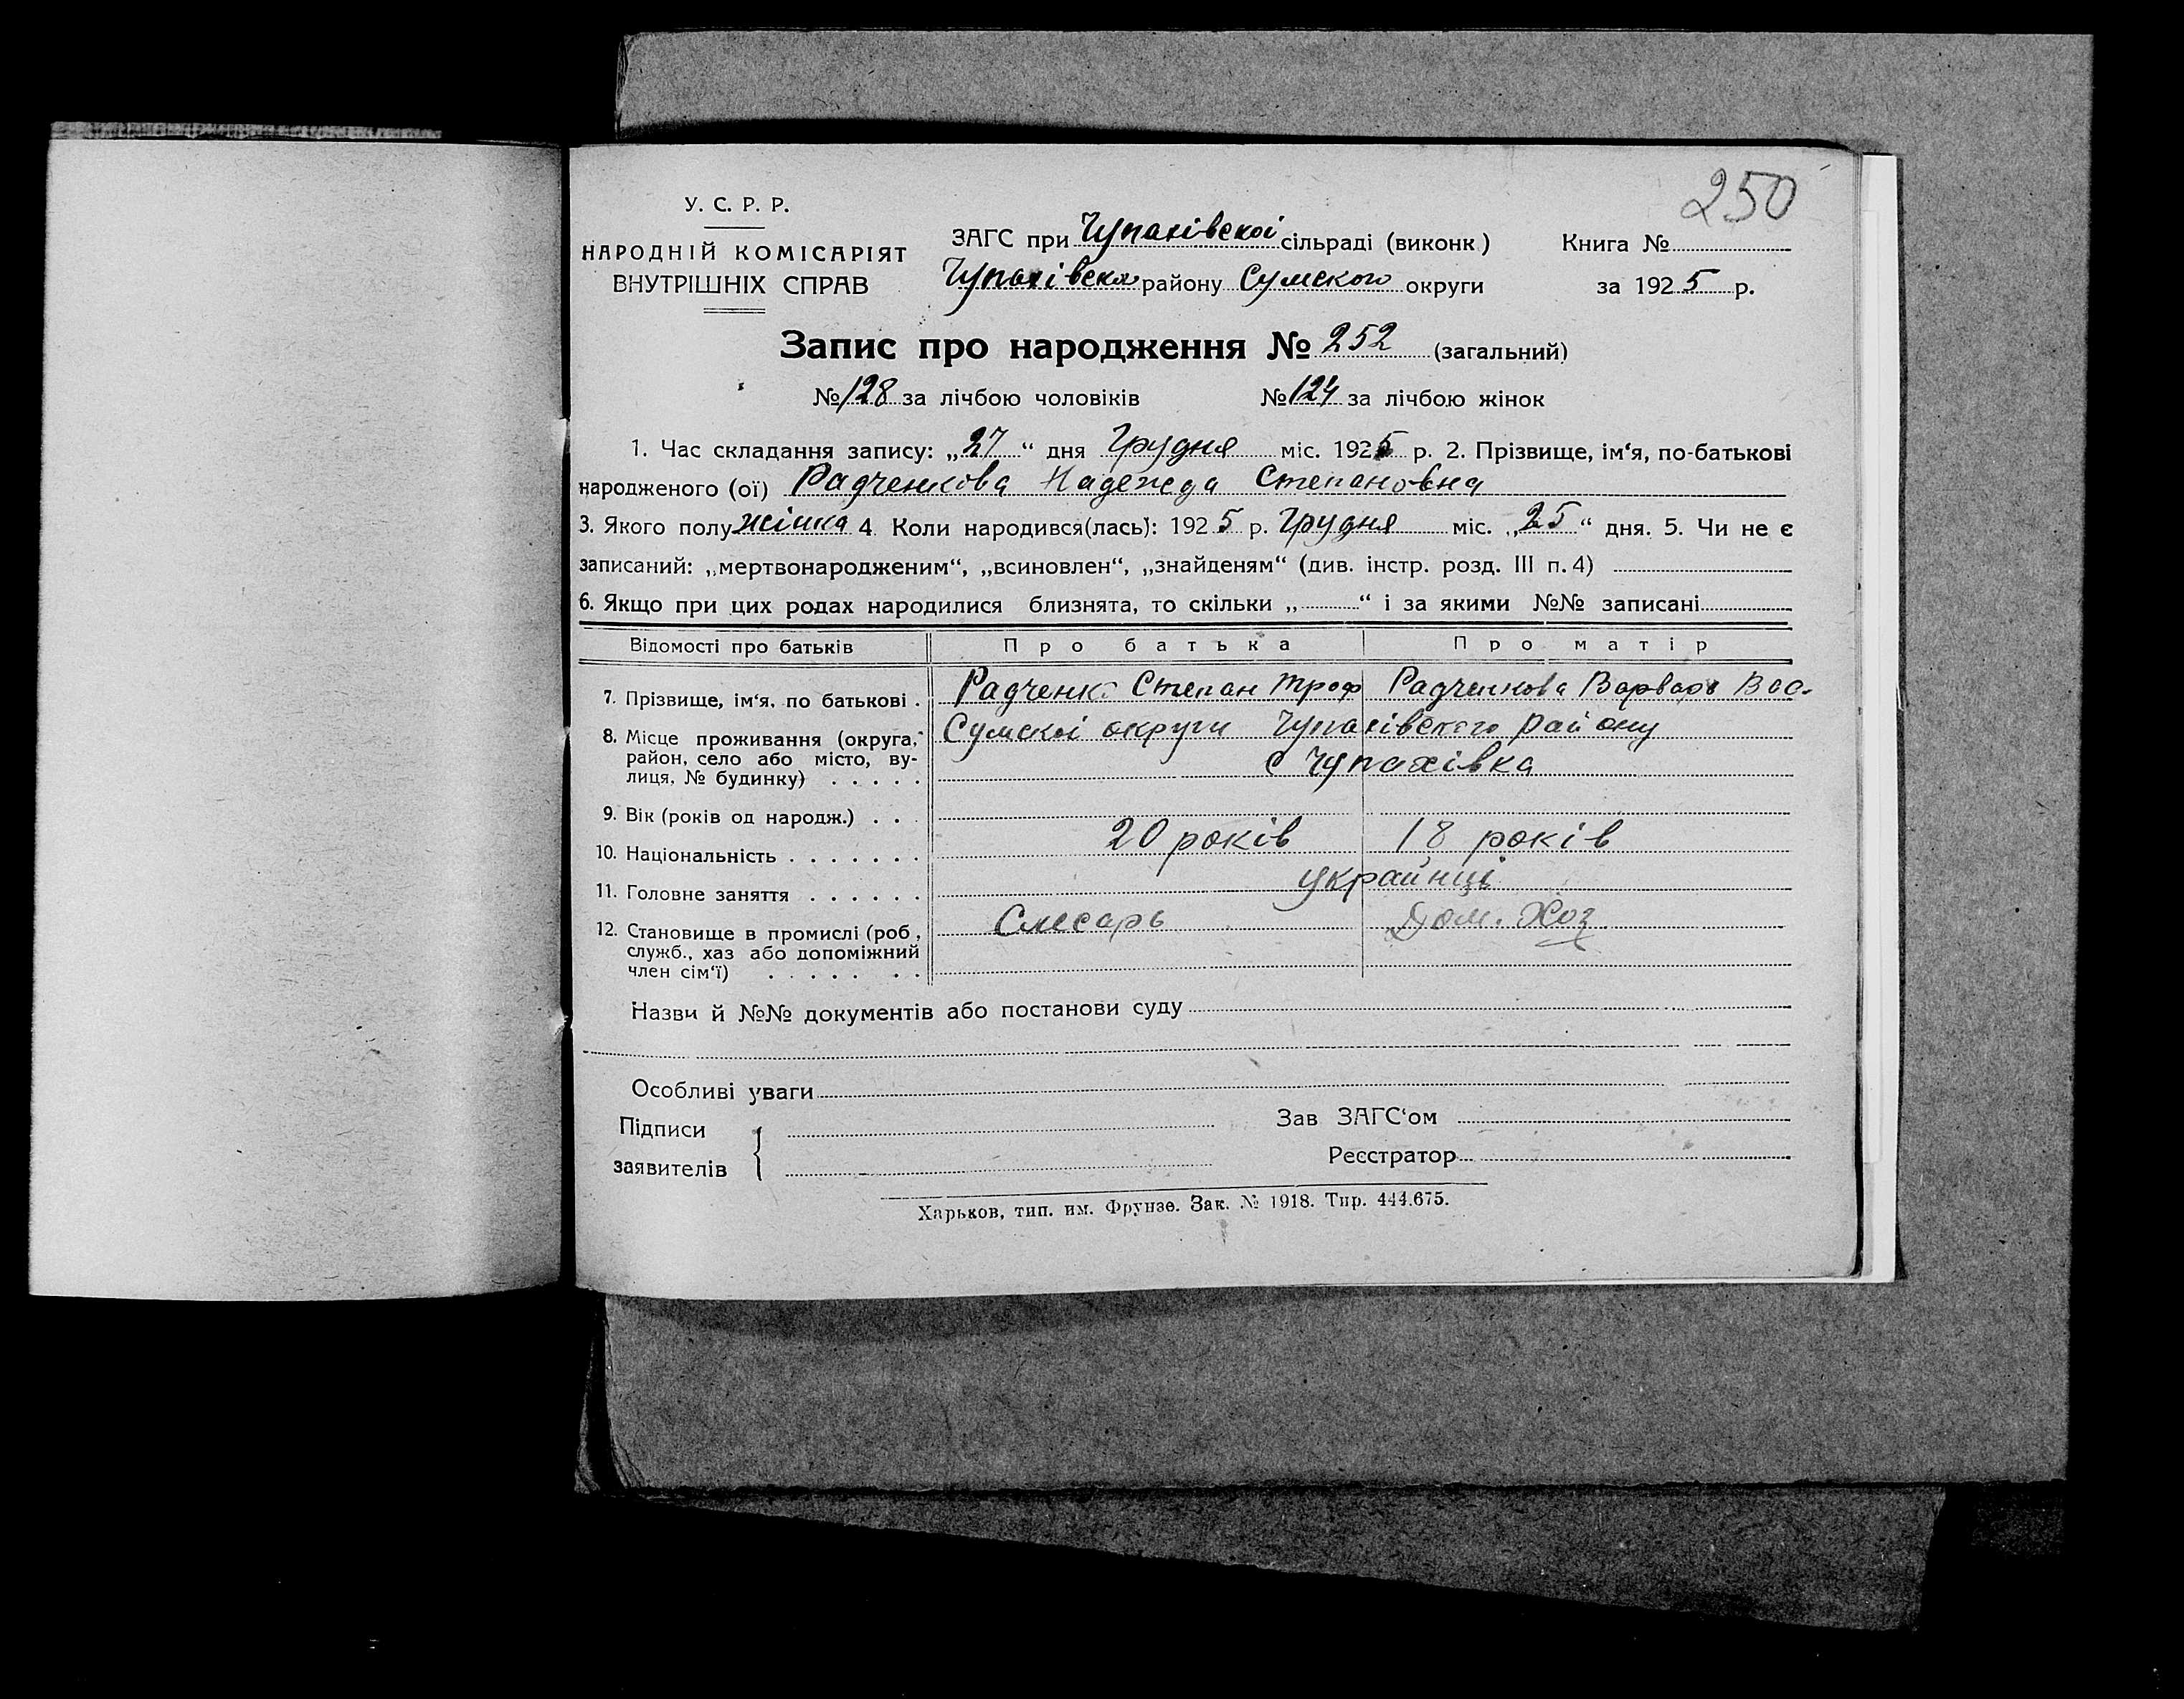 250
У. С. Р. Р.
НАРОДНІЙ КОМІСАРІЯТ
ВНУТРІШНІХ СПРАВ
ЗАГС при Чупахівскоі сільраді (виконк.)
Чупахівско району Сумского округи
Книга №
за 1925 р.
Запис про народження № 252 (загальний)
№ 128 за лічбою чоловіків № 124 за лічбою жінок
1. Час складання запису: „27“ дня Грудня міс. 1925 р. 2. Прізвище, ім‘я, по-батькові
народженого (ої) Радченкова Надежда Степановна
3. Якого полу жінка 4. Коли народився(лась): 1925 р. Грудня міс. „25“ дня. 5. Чи не є
записаний: „мертвонародженим“, „всиновлен“, „знайденям“ (див. інстр. розд. III п. 4)
6. Якщо при цих родах народилися близнята, то скільки „ “ і за якими №№ записані
Відомості про батьків Про батька Про матір
7. Прізвище, ім‘я, по батькові . Радченко Степан Троф Радченкова Варвара Вас.
8. Місце проживання (округа, Сумскоі округи Чупахівского району
район, село або місто, ву-
лиця, № будинку) . . . . . с Чупахівка
9. Вік (років од народж.) . . .
20 років 18 років
10. Національність . . . . . . .
українці
11. Головне заняття . . . . . .
Слесарь Дом. Хоз
12. Становище в промислі (роб.,
служб., хаз або допоміжний
член сім‘ї) . . . . . . .
Назви й №№ документів або постанови суду
Особливі уваги
Підписи
заявителів
Зав ЗАГС‘ом
Реєстратор
Харьков, тип. им. Фрунзе. Зак. № 1918. Тир. 444.675.